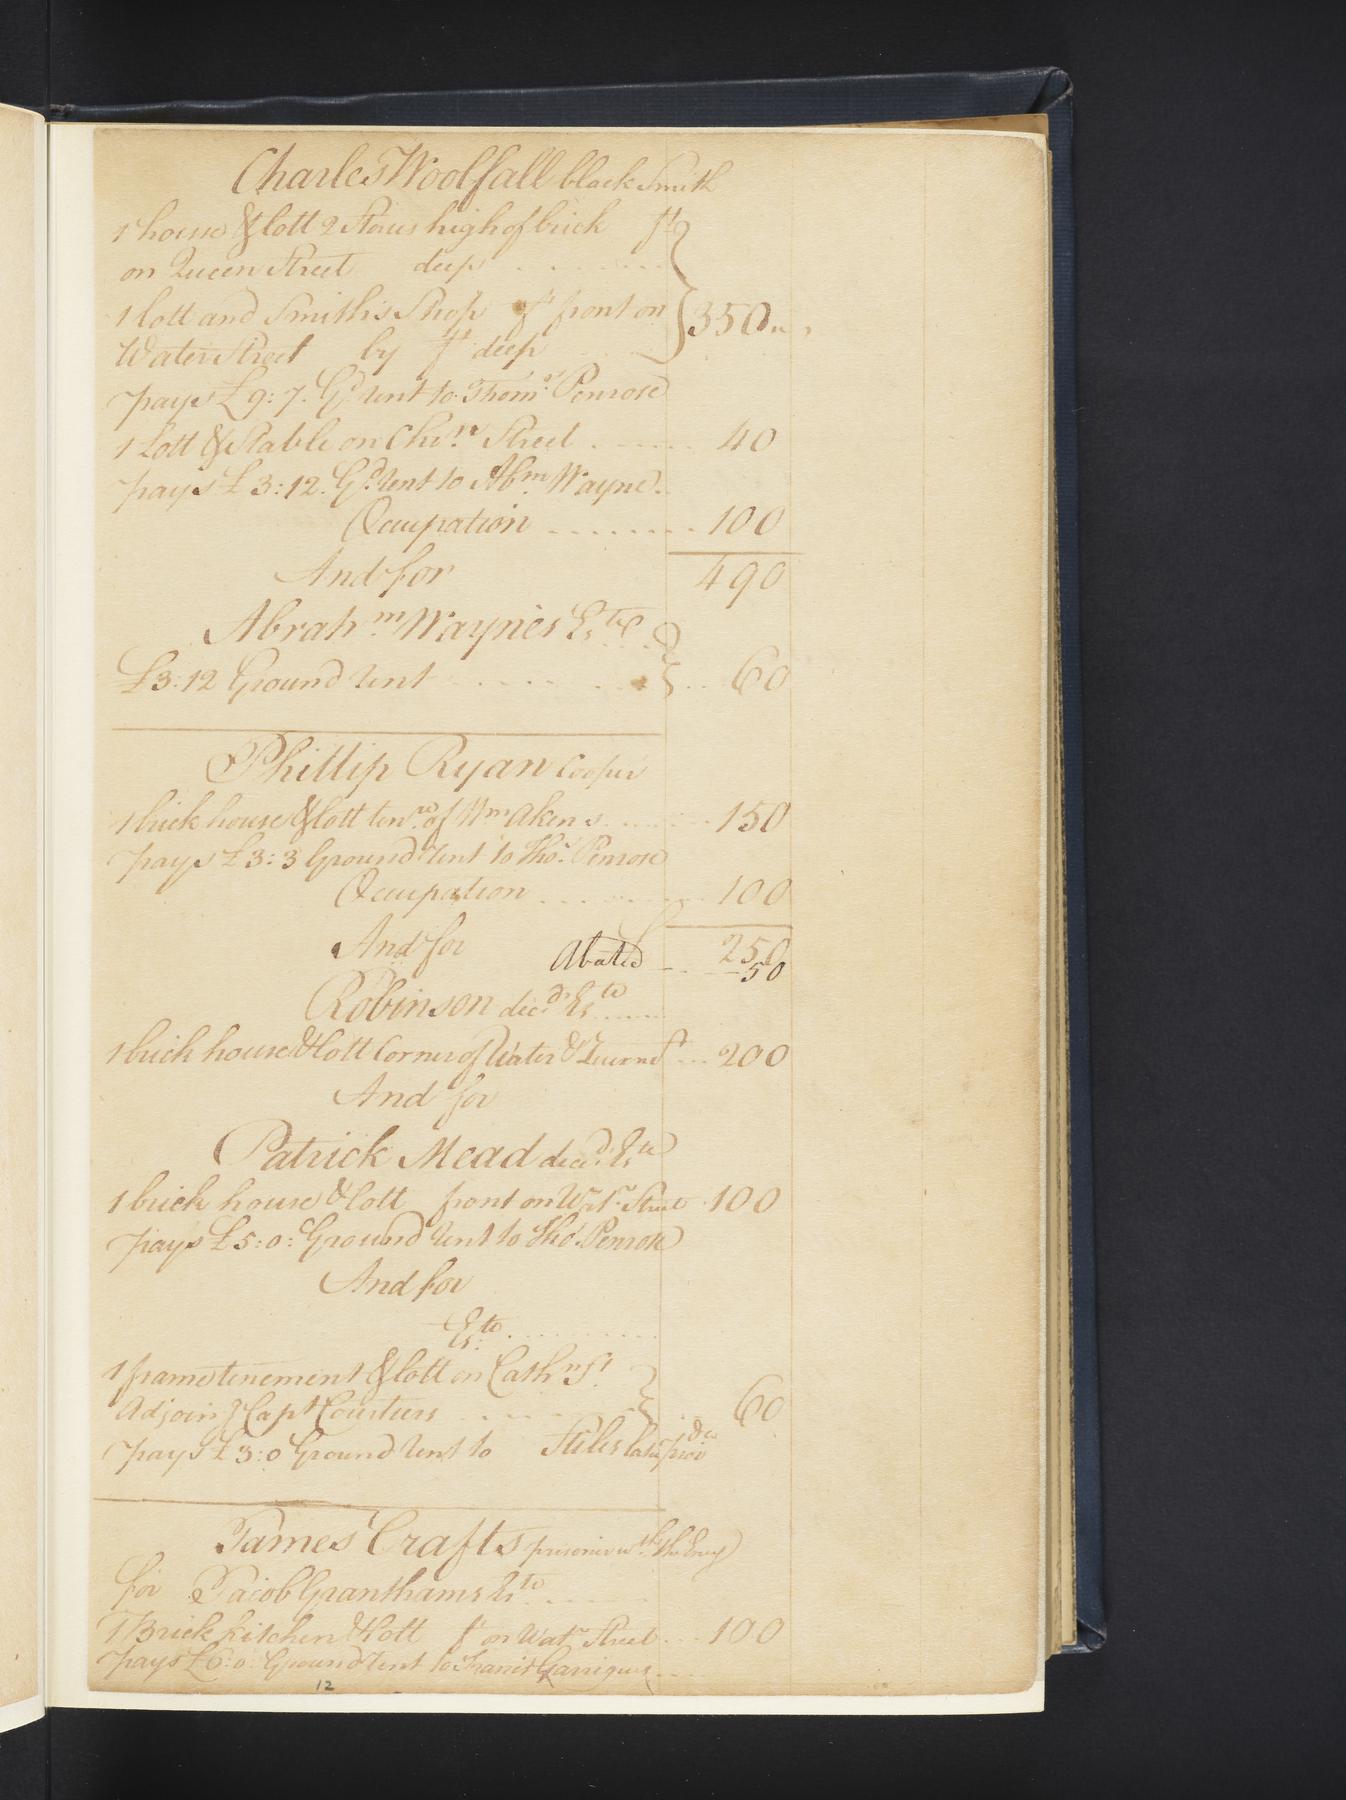 Charles Woolfall black Smith
1 house & lott 2 Stories high of brick ft
on Queen Street deep
1 lott and Smith's Shop ft front on 350
Water Street by ft deep
pays £9:7. Gd rent to Thoms Penrose
1 Lott & Stable on Chrn Street 40
pays £3:12. Gd rent to Abm Wayne
Occupation 100
And for 490
Abrahm Waynes Este
£3:12 Ground rent 60
Phillip Ryan Cooper
1 brick house & lott tenre of Wm Akens 150
pays £3:3 Ground rent to Thos Penrose
Occupation 100
And for Abated 250
50
Robinson decd Este
1 brick house & lott Corner of Water & Queen St 200
And for
Patrick Mead decd Este
1 brick house & lott front on Watr Street 100
pays £5:0: Ground rent to Thos Penrose
And for
Este
1 frame tenement & lott on Cathn St
Adjoing Capt Courters 60
pays £3:0 Ground rent to Stiles late
James Crafts prisoner wth the Enemy
for Jacob Granthams Este
1 Brick kitchen & lott ft on Watr Street 100
pays £6:0: Ground rent to Francis Garrigues
12